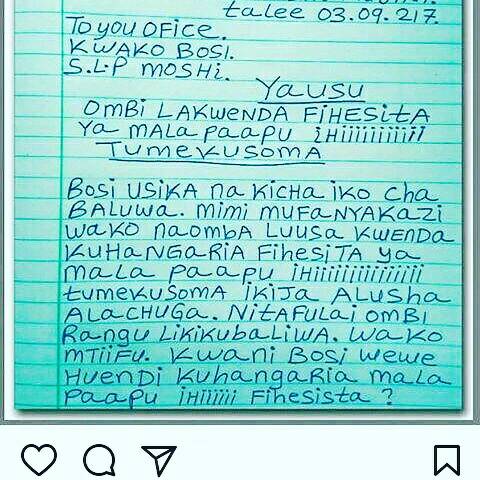 talee 03.09.217.
To you Ofice.
KWAKO BOSI.
S.L.P MOSHI.
YAUSU
OMBI LAKWENDA FIHESITA
Ya MaLa Paapu iHiiiiiiiiiii
TUMEKUSOMA
BOSI USIKA na KICHa iKO Cha
BALUWa. MiMi MUFaNYAKAZI
WaKO NaOMbA LUUSa KWENDa
KUHaNGaRiA FiHeSiTA ya
MaLa Paapu iHiiiiiiiiiiiiiii
tUMEKUSOMA iKiJA ALUSHa
ALACHUGa. NiTAFULAi OMBi
Rangu LiKiKUbaLiWa. WaKO
MTiiFU. KWaNi BOSi WeWe
HUENDi KUHaNGARia MaLa
Paapu iHiiiiii FiheSiSta ?